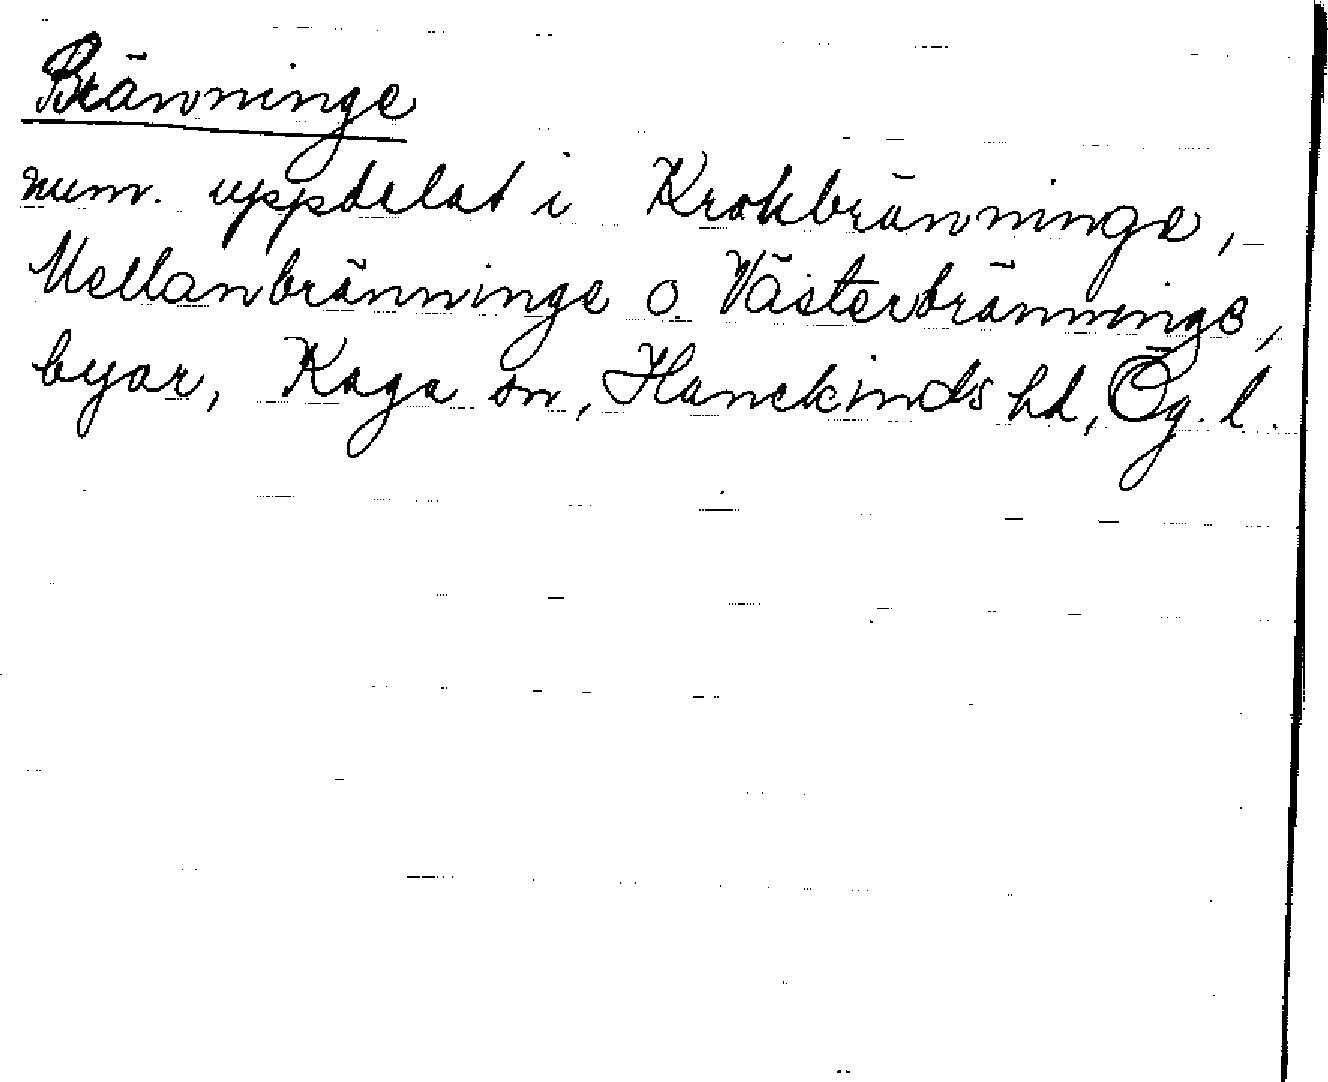 Bränninge
num. uppdelat i Krokbränninge,
Mellanbränninge o. Västerbränninge,
byar, Kaga sn, Hanekinds hd, Ög. l.